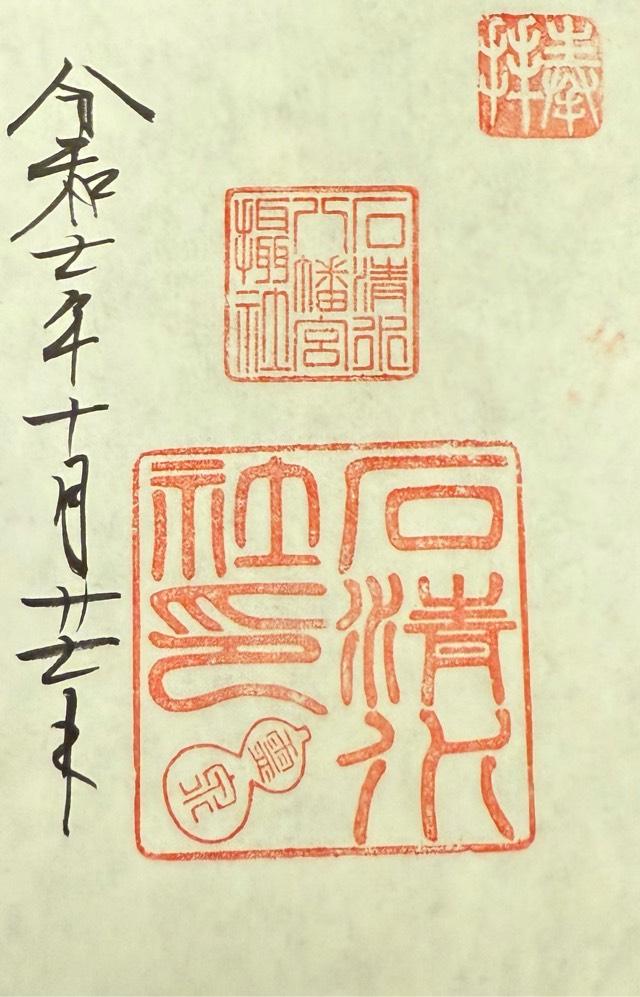 奉拝
石清水
八幡宮
攝社
石清水
社印
霊泉
令和七年十月廿七日